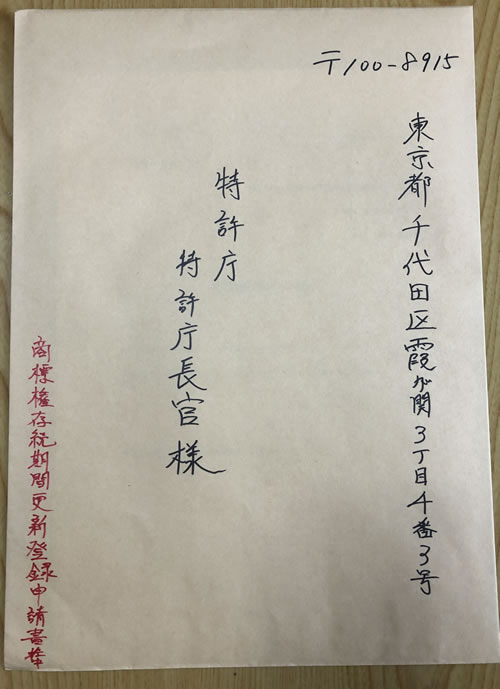 〒100-8915
東京都千代田区霞が関3丁目4番3号
特許庁
特許庁長官様
商標権存続期間更新登録申請書在中